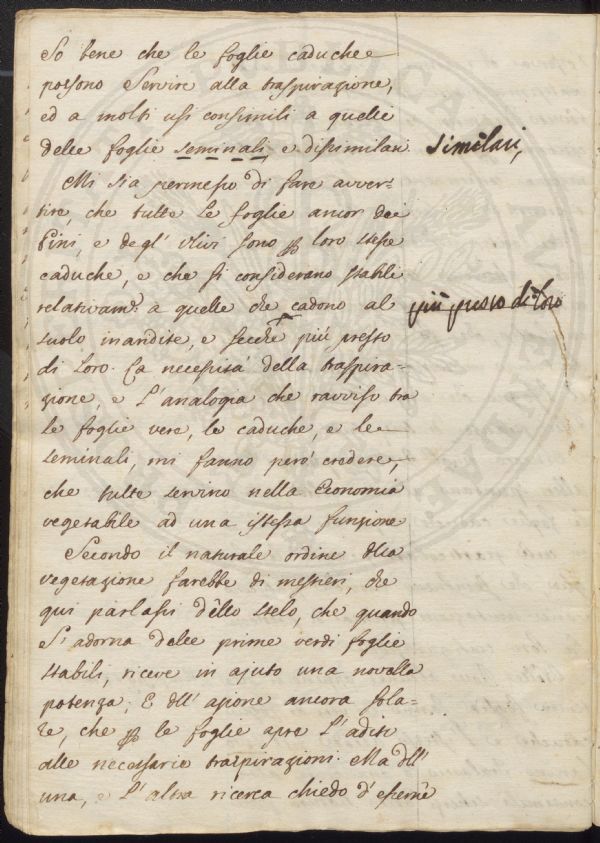 So bene che le foglie caduche
possono servire alla traspirazione,
ed a molti usi consimili a quelle
delle foglie seminali, e dissimilari. similari,
Mi sia permesso di fare avver-
tire, che tutte le foglie ancor dei
Pini, e degl' Ulivi sono p loro stesse
caduche, e che si considerano stabili
relativam.e a quelle che cadono al più presto di loro
suolo inaridite, e secche più presto
di loro. La necessità della traspira-
zione, e l'analogia che ravviso tra
le foglie vere, le caduche, e le
seminali, mi fanno però credere,
che tutte servino nella Economia
vegetabile ad una istessa funzione
Secondo il naturale ordine dlla
vegetazione farebbe di mestieri, che
qui parlassi dello stelo, che quando
si adorna delle prime verdi foglie
stabili, riceve in ajuto una novella
potenza; E dll' azione ancora sola-
re, che p le foglie apre l'aditi
alle necessarie traspirazioni. Ma dll'
una, e l'altra ricerca chiedo d'esserne